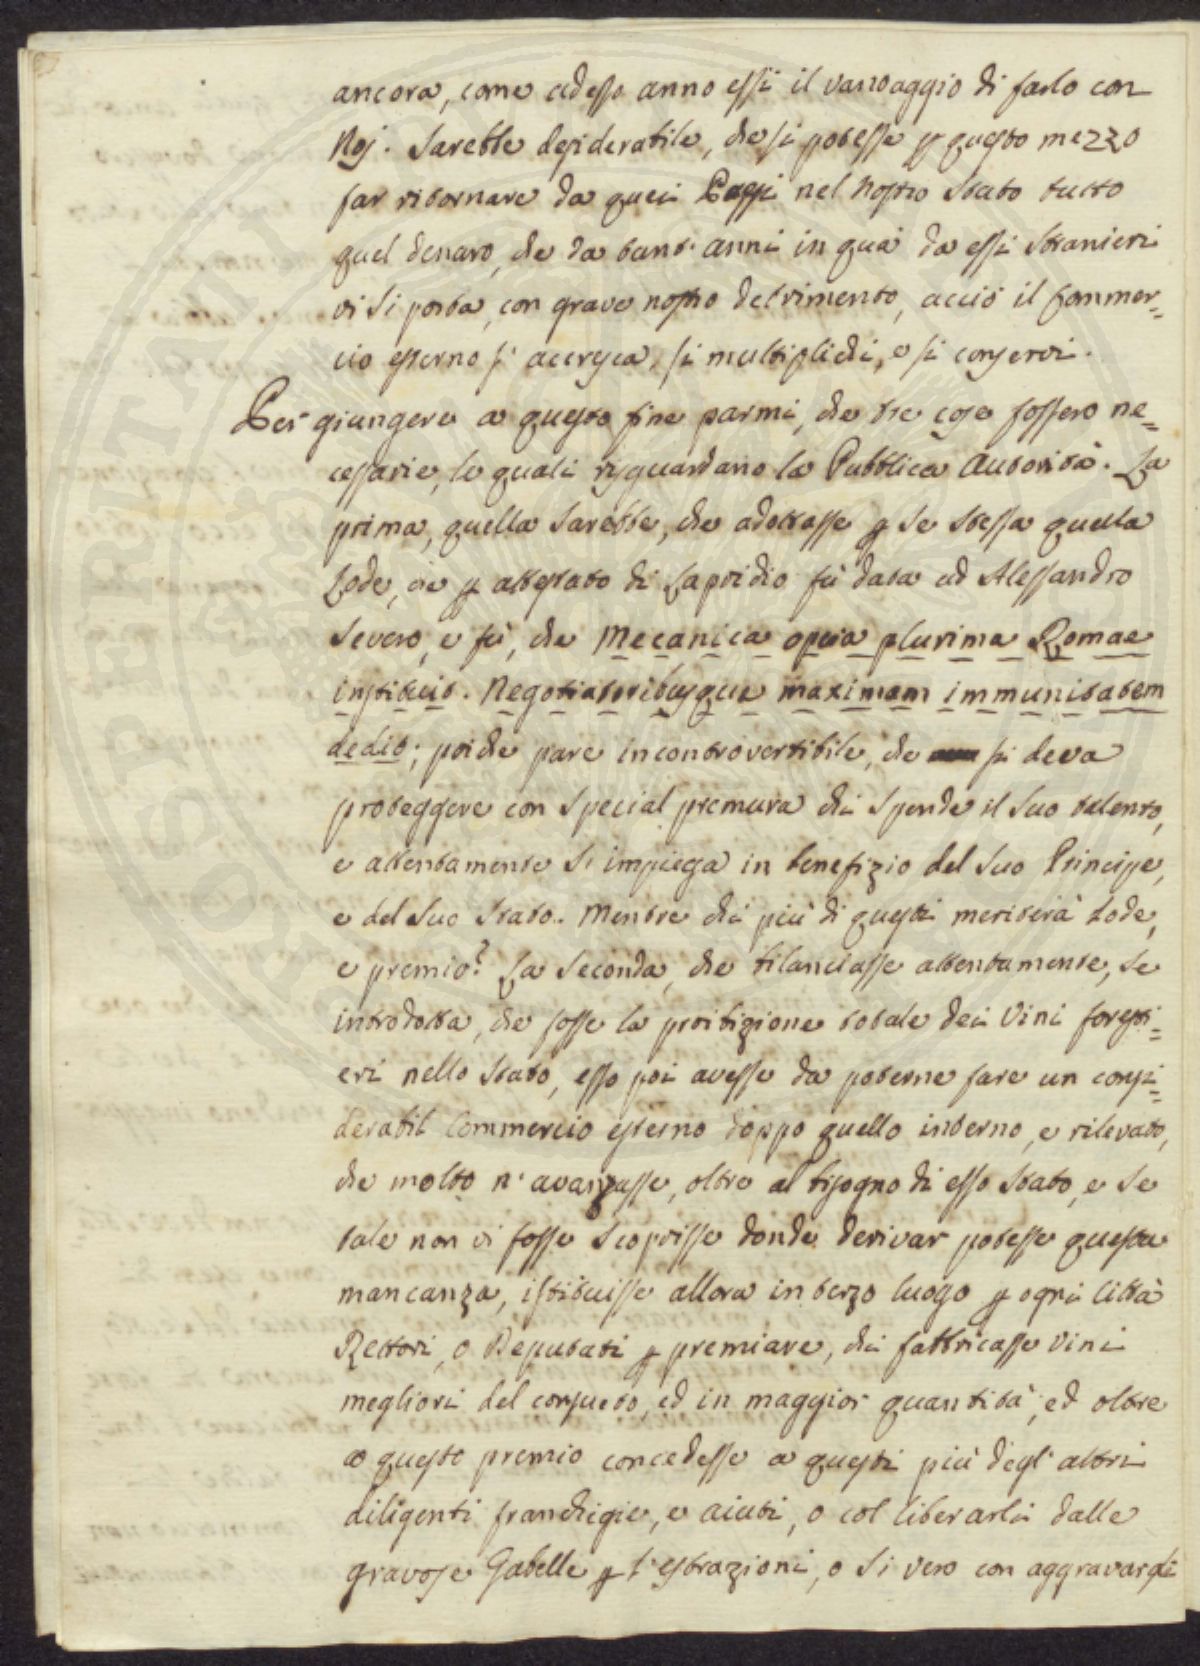 ancora, come adesso anno essi il vantaggio di farlo con
Noj. Sarebbe desiderabile, che si potesse p questo mezzo
far ritornare da quei Paesi nel Nostro Stato tutto
quel denaro, che da tant' anni in quà da essi stranieri
vi si porta, con grave nostro detrimento, acciò il Commer=
cio esterno s' accresca, si multiplichi, e si conservi.
Per giungere a questo fine parmi, che tre cose fossero ne=
cessarie, le quali risguardano la Pubblica Autorità. La
prima, quella sarebbe, che adottasse p se stessa quella
Lode, che p attestato di Lapridio fù data ad Alessandro
Severo, e fù, che Mecanica opera plurima Romae
instituit. Negotiatoribusque maximam immunitatem
dedit; poiche pare incontrovertibile, che si deva
proteggere con special premura chi spende il suo talento,
e attentamente si impiega in benefizio del suo Principe,
e del suo Stato. Mentre chi più di questi meriterà Lode,
e premio? La Seconda, che bilanciasse attentamente, se
introdotta, che fosse la proibizione totale dei Vini foresti=
eri nello Stato, esso poi avesse da poterne fare un consi=
derabil Commercio esterno doppo quello interno, e rilevato,
che molto n' avanzasse, oltre al bisogno di esso Stato, e se
tale non vi fosse scoprisse donde derivar potesse questa
mancanza, istituisse allora in terzo luogo p ogni Città
Rettori, o Deputati p premiare, chi fabbricasse Vini
megliori del consueto, ed in maggior quantità, ed oltre
a questo premio concedesse a questi più degl' altri
diligenti franchigie, e aiuti, o col liberarli dalle
gravose Gabelle p l' estrazioni, o si vero con aggravarli